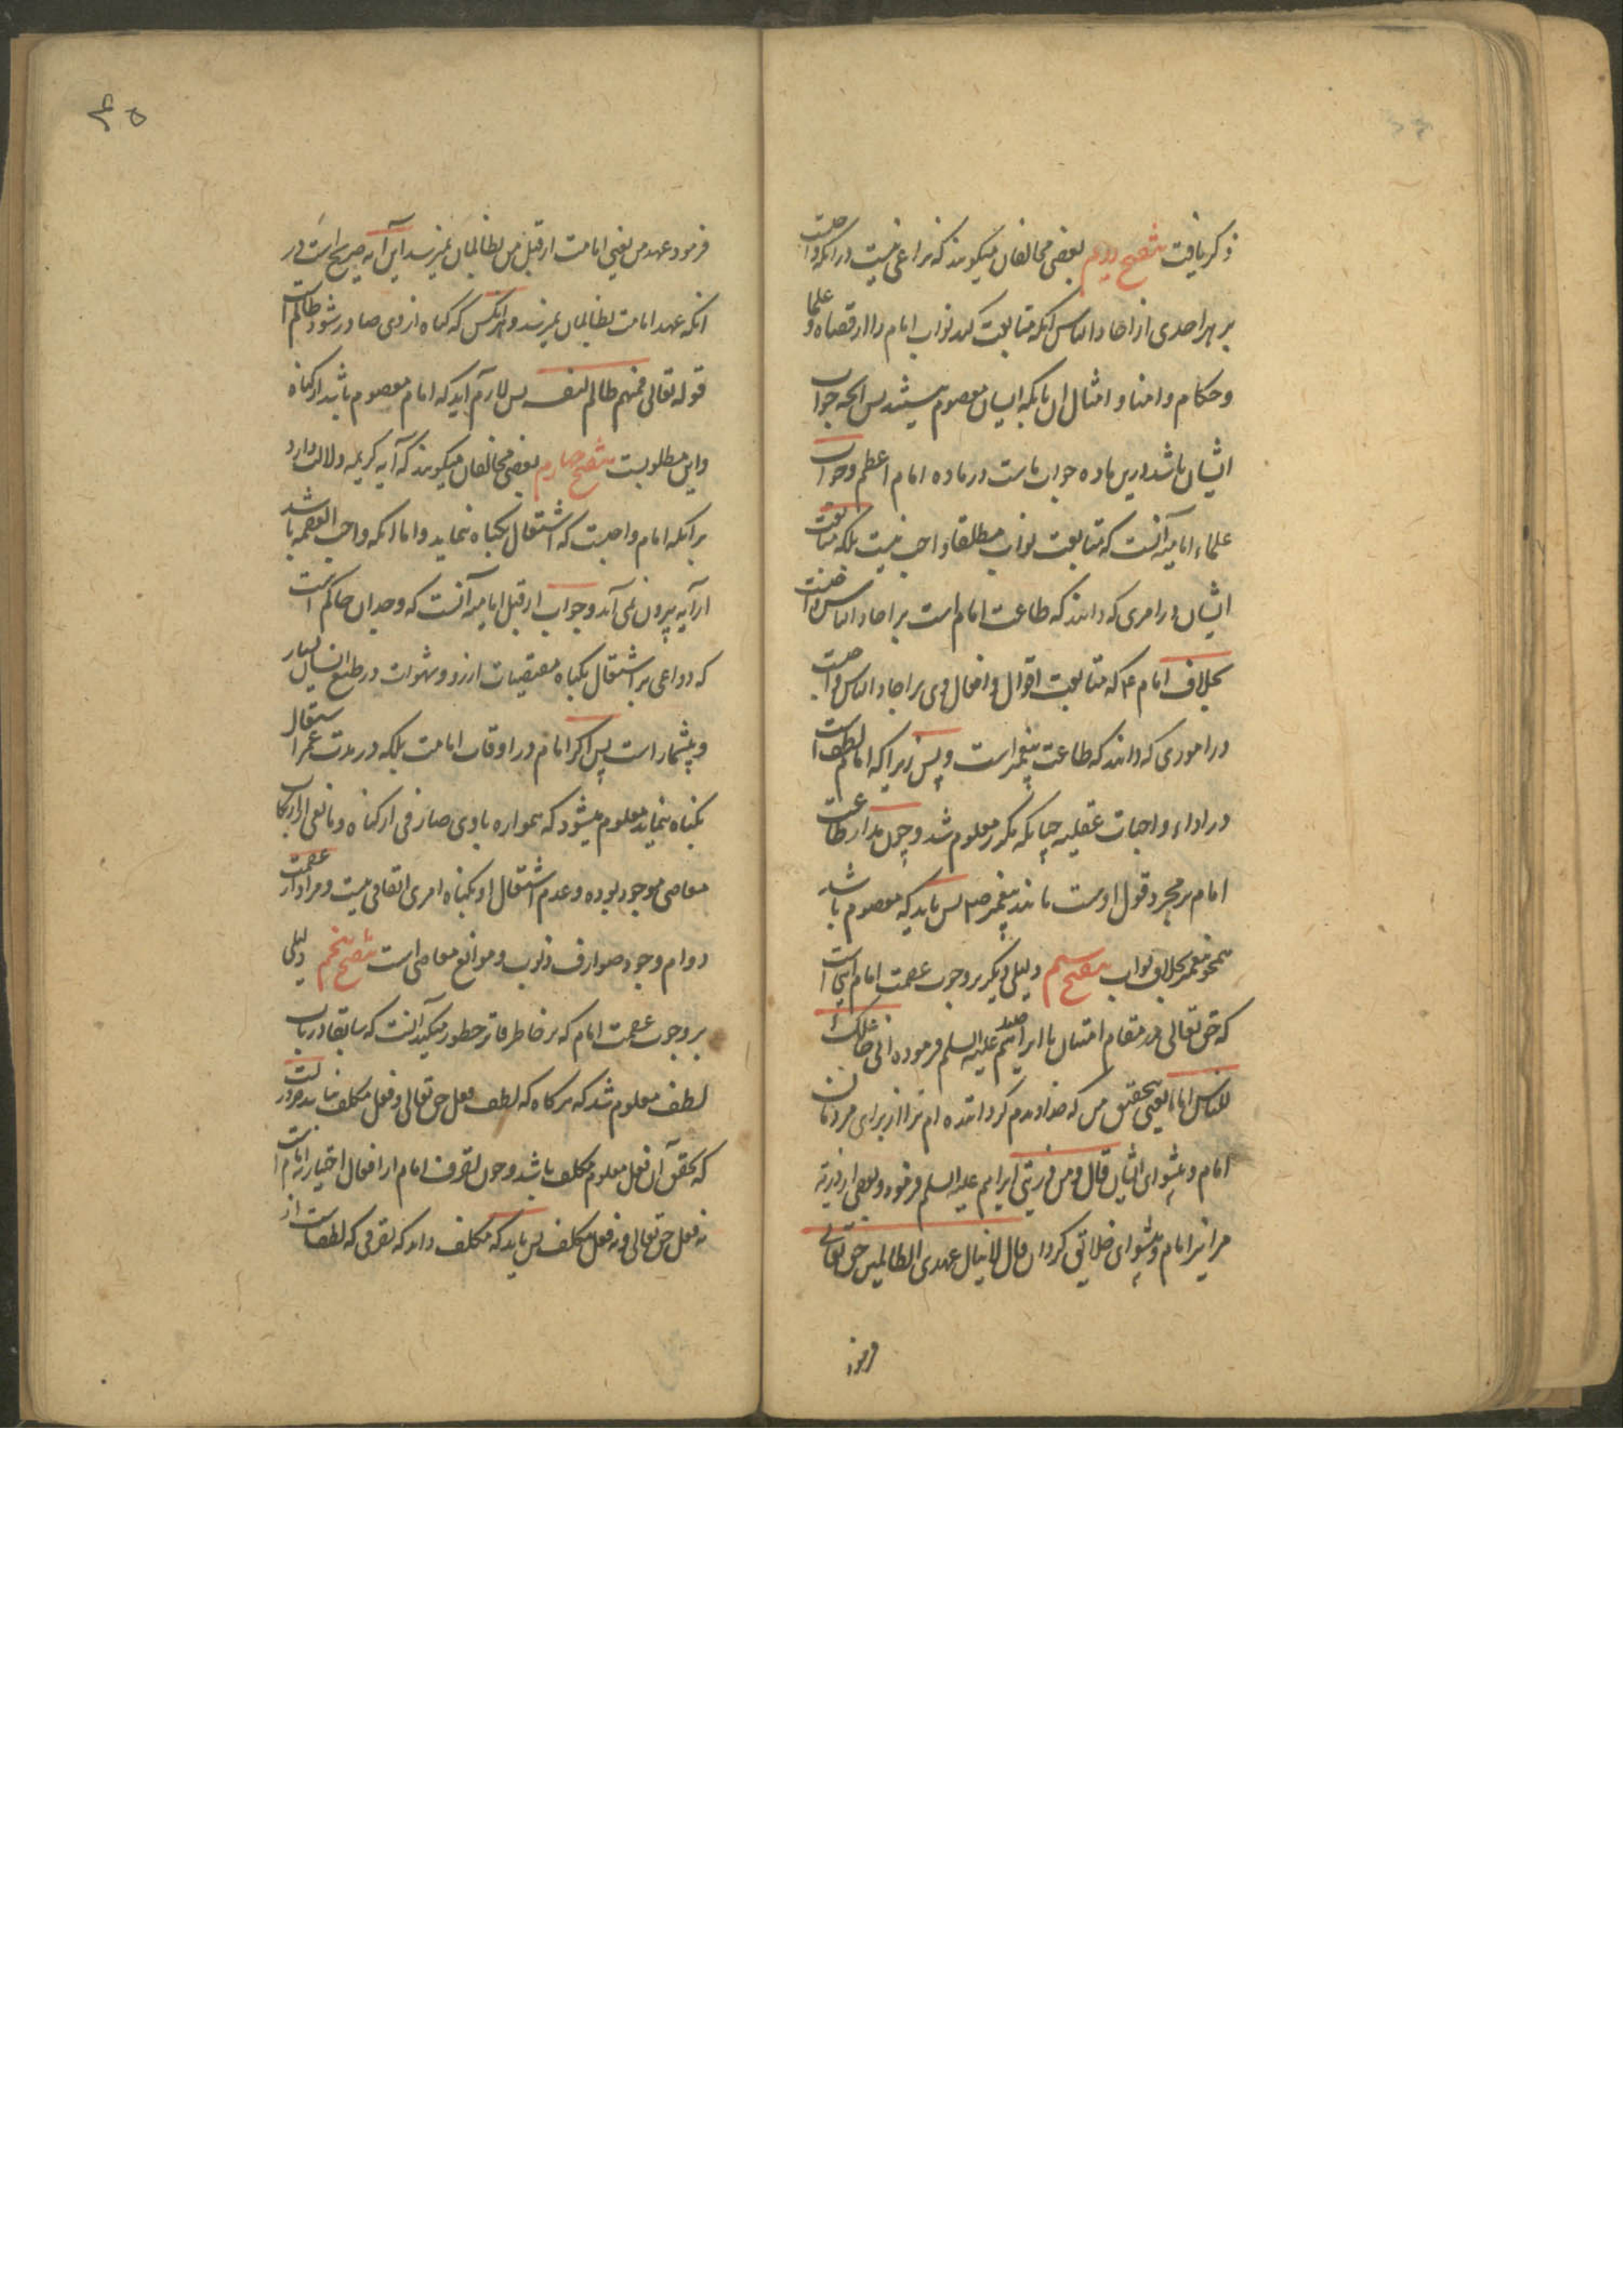 ذکر یافت تنقیح دویم بعضی مخالفان میکویند که نزاعی نیست در انکه واجبست
بر هر احدی از احاد الناس انکه متابعت کند نواب امام را از قضاه و علما
وحکام و امنا و امثال ان بانکه ایشان معصوم نیستند پس انچه جواب
ایشان باشد درین ماده جواب ماست در ماده امام اعظم وجواب
علماء امامیه آنست که متابعت نواب مطلقا واجب نیست بلکه متابعت
ایشان در امری که دانند که طاعت امام است بر احاد الناس واجبست
بخلاف امام ع که متابعت اقوال و افعال وی بر احاد الناس واجبست
در اموری که دانند که طاعت پیغمبر است و پس زیرا که امام لطف است
در اداء واجبات عقلیه چنانکه مکرر معلوم شد وچون مدار طاعت
امام بر مجرد قول اوست مانند پیغمبر ص پس باید که معصوم باشد
همچو پیغمبر بخلاف نواب تنقیح سیم دلیلی دیکر بر وجوب عصمت امام اینست
که حق تعالی در مقام امتنان با ابراهیم علیه السلم فرموده انی جاعلک
للناس اماما یعنی بتحقیق من که خداوندم کرداننده ام ترا از برای مردمان
امام و پیشوای ایشان قال ومن ذریتی ابراهیم علیه السلم فرمود وبعضی از ذریه
مرا نیز امام و پیشوای خلایق کردان قال لا ینال عهدی الظالمین حق تعالی
فرمود
۴۵
فرمود عهد من یعنی امامت از قبل من بظالمان نمیرسد این آیه صریح است در
انکه عهد امامت بظالمان نمیرسد و هر انکس که کناه از وی صادر شود ظالم است
قوله تعالی فمنهم ظالم لنفسه پس لازم آید که امام معصوم باشد از کناه
واین مطلوبست تنقیح چهارم بعضی مخالفان میکویند که آیه کریمه دلالت دارد
بر انکه امام واجبست که اشتغال بکناه ننماید و اما انکه واجب العصمه باشد
از آیه بیرون نمی آید وجواب از قبل امامیه آنست که وجدان حاکم است
که دواعی بر اشتغال بکناه مقتضیات ارزو و شهوات در طبع انسان بسیار
و بیشمار است پس اکر امام در اوقات امامت بلکه در مدت عمر اشتغال
بکناه ننماید معلوم میشود که همواره با وی صارفی از کناه و مانعی از ارتکاب
معاصی موجود بوده و عدم اشتغال او بکناه امری اتفاقی نیست و مراد از عصمت
دوام وجود صوارف ذنوب و موانع معاصی است تنقیح پنجم دلیلی
بر وجوب عصمت امام که بر خاطر فاتر خطور میکند آنست که سابقا در باب
لطف معلوم شد که هرکاه که لطف فعل حق تعالی و فعل مکلف نباشد ضرورتست
که تحقق آن فعل معلوم مکلف باشد وچون تصرف امام از افعال اختیاریه امام است
نه فعل حق تعالی و نه فعل مکلف پس باید که مکلف داند که تصرفی که لطفست از